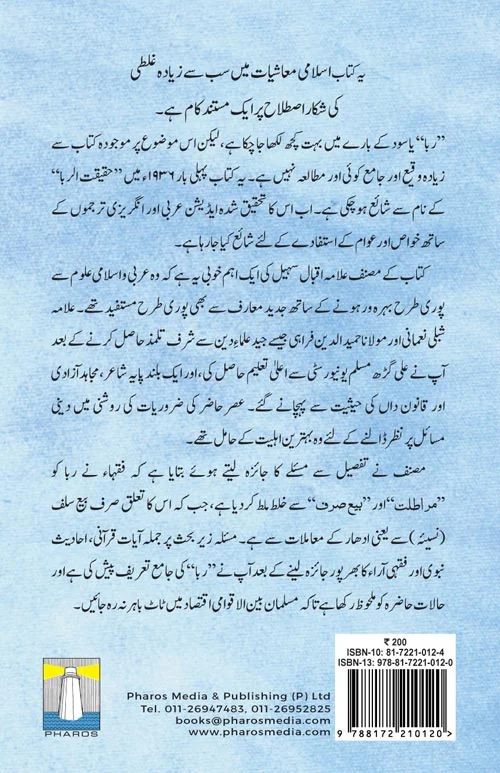 یہ کتاب اسلامی معاشیات میں سب سے زیادہ غلطی
کی شکار اصطلاح پر ایک مستند کام ہے۔
”ربا“ یا سود کے بارے میں بہت کچھ لکھا جا چکا ہے، لیکن اس موضوع پر موجودہ کتاب سے
زیادہ وقیع اور جامع کوئی اور مطالعہ نہیں ہے۔ یہ کتاب پہلی بار ۱۹۳۶ء میں ”حقیقت الربا“
کے نام سے شائع ہو چکی ہے۔ اب اس کا تحقیق شدہ ایڈیشن عربی اور انگریزی ترجموں کے
ساتھ خواص اور عوام کے استفادے کے لئے شائع کیا جا رہا ہے۔
کتاب کے مصنف علامہ اقبال سہیل کی ایک اہم خوبی یہ ہے کہ وہ عربی و اسلامی علوم سے
پوری طرح بہرہ ور ہونے کے ساتھ جدید معارف سے بھی پوری طرح مستفید تھے۔ علامہ
شبلی نعمانی اور مولانا حمید الدین فراہی جیسے جید علماء دین سے شرف تلمذ حاصل کرنے کے بعد
آپ نے علی گڑھ مسلم یونیورسٹی سے اعلیٰ تعلیم حاصل کی، اور ایک بلند پایہ شاعر، مجاہد آزادی
اور قانون داں کی حیثیت سے پہچانے گئے۔ عصر حاضر کی ضروریات کی روشنی میں دینی
مسائل پر نظر ڈالنے کے لئے وہ بہترین اہلیت کے حامل تھے۔
مصنف نے تفصیل سے مسئلے کا جائزہ لیتے ہوئے بتایا ہے کہ فقہاء نے ربا کو
”مراطلت“ اور ”بیع صرف“ سے خلط ملط کر دیا ہے، جب کہ اس کا تعلق صرف بیع سلف
(نسیئہ) سے یعنی ادھار کے معاملات سے ہے۔ مسئلہ زیر بحث پر جملہ آیات قرآنی، احادیث
نبوی اور فقہی آراء کا بھرپور جائزہ لینے کے بعد آپ نے ”ربا“ کی جامع تعریف پیش کی ہے اور
حالات حاضرہ کو ملحوظ رکھا ہے تاکہ مسلمان بین الاقوامی اقتصاد میں ٹاٹ باہر نہ رہ جائیں۔
₹ 200
ISBN-10: 81-7221-012-4
ISBN-13: 978-81-7221-012-0
9 788172 210120 >
PHAROS
Pharos Media & Publishing (P) Ltd
Tel. 011-26947483, 011-26952825
books@pharosmedia.com
www.pharosmedia.com